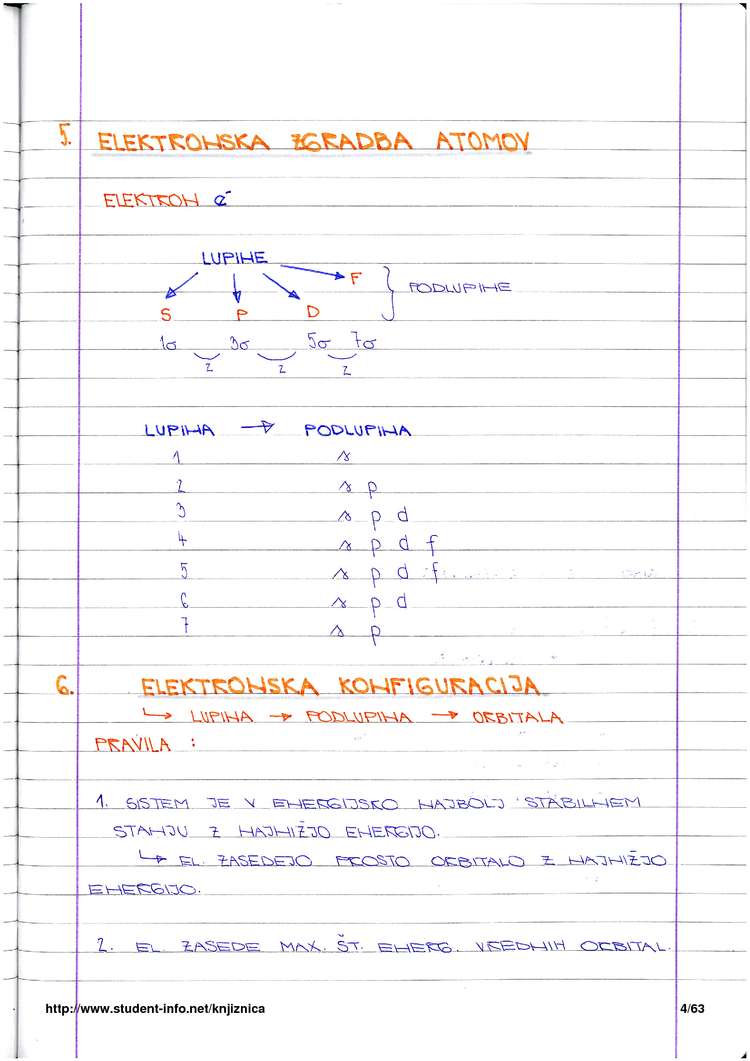 5. ELEKTRONSKA ZGRADBA ATOMOV
ELEKTRON e⁻
LUPINE
F
PODLUPINE
S P D
1σ 3σ 5σ 7σ
2 2 2
LUPINA → PODLUPINA
1 s
2 s p
3 s p d
4 s p d f
5 s p d f
6 s p d
7 s p
6. ELEKTRONSKA KONFIGURACIJA
↳ LUPINA → PODLUPINA → ORBITALA
PRAVILA :
1. SISTEM JE V ENERGIJSKO NAJBOLJ STABILNEM
STANJU Z NAJNIŽJO ENERGIJO.
↳ EL. ZASEDEJO PROSTO ORBITALO Z NAJNIŽJO
ENERGIJO.
2. EL. ZASEDE MAX. ŠT. ENERG. VREDNIH ORBITAL.
http://www.student-info.net/knjiznica 4/63